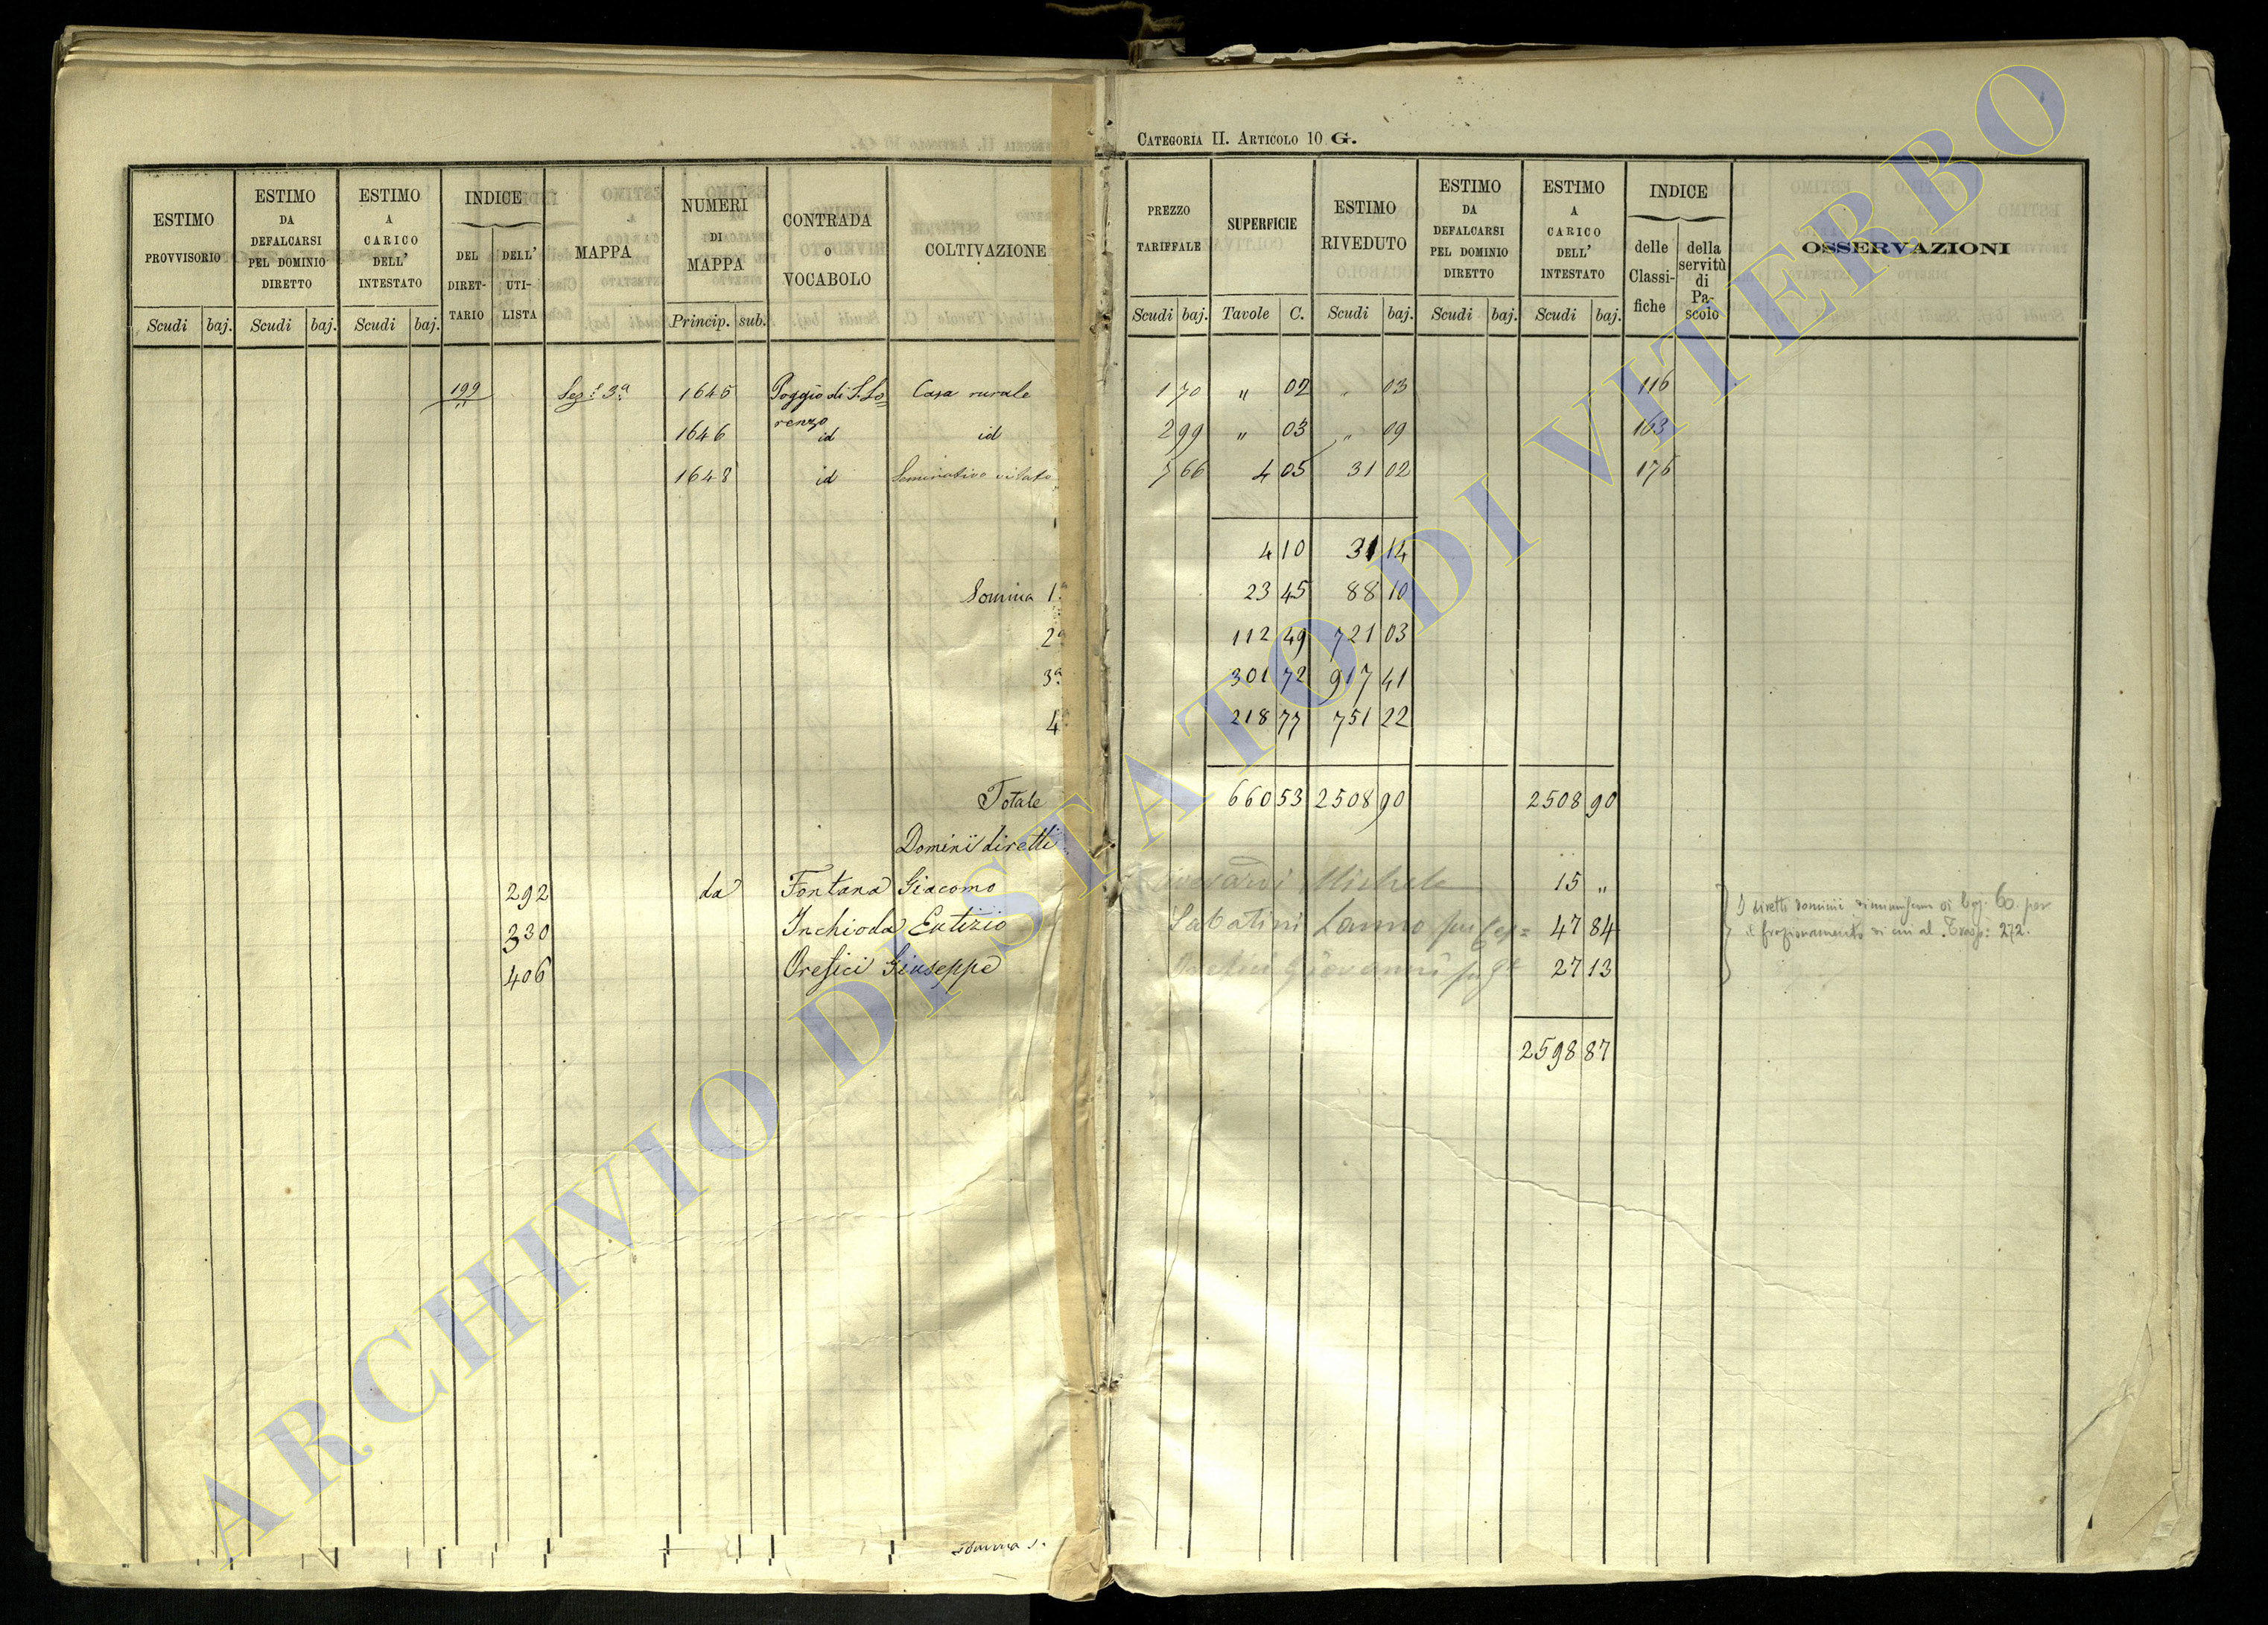 CATEGORIA II. ARTICOLO 10 G.
ESTIMO PROVVISORIO
Scudi baj.
ESTIMO DA DEFALCARSI PEL DOMINIO DIRETTO
Scudi baj.
ESTIMO A CARICO DELL' INTESTATO
Scudi baj.
INDICE
DEL DIRETTARIO
DELL' UTILISTA
MAPPA
NUMERI DI MAPPA
Princip. sub.
CONTRADA o VOCABOLO
COLTIVAZIONE
PREZZO TARIFFALE
Scudi baj.
SUPERFICIE
Tavole C.
ESTIMO RIVEDUTO
Scudi baj.
ESTIMO DA DEFALCARSI PEL DOMINIO DIRETTO
Scudi baj.
ESTIMO A CARICO DELL' INTESTATO
Scudi baj.
INDICE
delle Classifiche
della servitù di Pascolo
OSSERVAZIONI
199 Sez.e 3a 1645 Poggio di S. Lo= Casa rurale 1 70 " 02 " 03 116
renzo
1646 id id 2 99 " 03 " 09 163
1648 id Seminativo vitato 7 66 4 05 31 02 176
4 10 31 14
Somma 1a 23 45 88 10
2a 112 49 721 03
3a 301 72 917 41
4a 218 77 751 22
Totale 660 53 2508 90 2508 90
Dominî diretti
292 da Fontana Giacomo Michele 15 "
330 Inchioda Eutizio Sabatini 47 84
406 Orefici Giuseppe Orefici Giovanni 27 13
I diretti dominii di baj. 60 per
il frazionamento di cui al Trasp: 272.
2598 87
Somma
ARCHIVIO DI STATO DI VITERBO